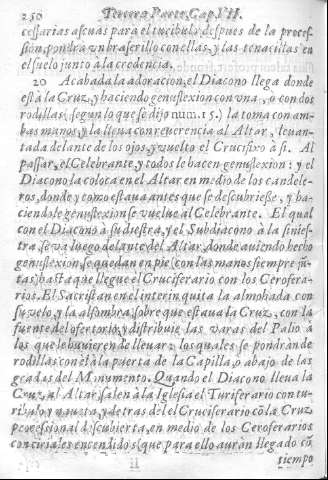 250 Tercera Parte, Cap. VII.
cessarias ascuas para el turibulo, despues de la procef-
sion, pondra un braserillo con ellas, y las tenacillas en
el suelo junto à la credencia.
20 Acabada la adoracion, el Diacono llega donde
està la Cruz, y haciendo genuflexion con vna, o con dos
rodillas (segun lo que se dijo num. 15.) la toma con am-
bas manos, y la lleua con reuerencia al Altar, leuan-
tada delante de los ojos, y vuelto el Crucifixo à si. Al
passar, el Celebrante, y todos le hacen genuflexion: y el
Diacono la coloca en el Altar en medio de los candele-
ros, donde, y como estaua antes que se descubriese, y ha-
ciendole genuflexion se vuelue al Celebrante. El qual
con el Diacono à su diestra, y el Subdiacono à la sinies-
tra, se va luego delante del Altar, donde auiendo hecho
genuflexion, se quedan en pie (con las manos siempre jū-
tas) hasta que llegue el Cruciferario con los Cerofera-
rios. El Sacristan en el interin quita la almohada con
su velo, y la alfombra, sobre que estaua la Cruz, con la
fuente del ofertorio, y distribuie las varas del Palio à
los que le huuieren de lleuar; los quales se pondràn de
rodillas con el à la puerta de la Capilla, o abajo de las
gradas del Monumento. Quando el Diacono lleua la
Cruz al Altar, salen à la Iglesia el Turiferario con tu-
ribulo, y naueta, y detras de el el Cruciferario cō la Cruz
procesional descubierta, en medio de los Ceroferarios
con ciriales encendidos (que para ello auràn llegado cō
tiempo